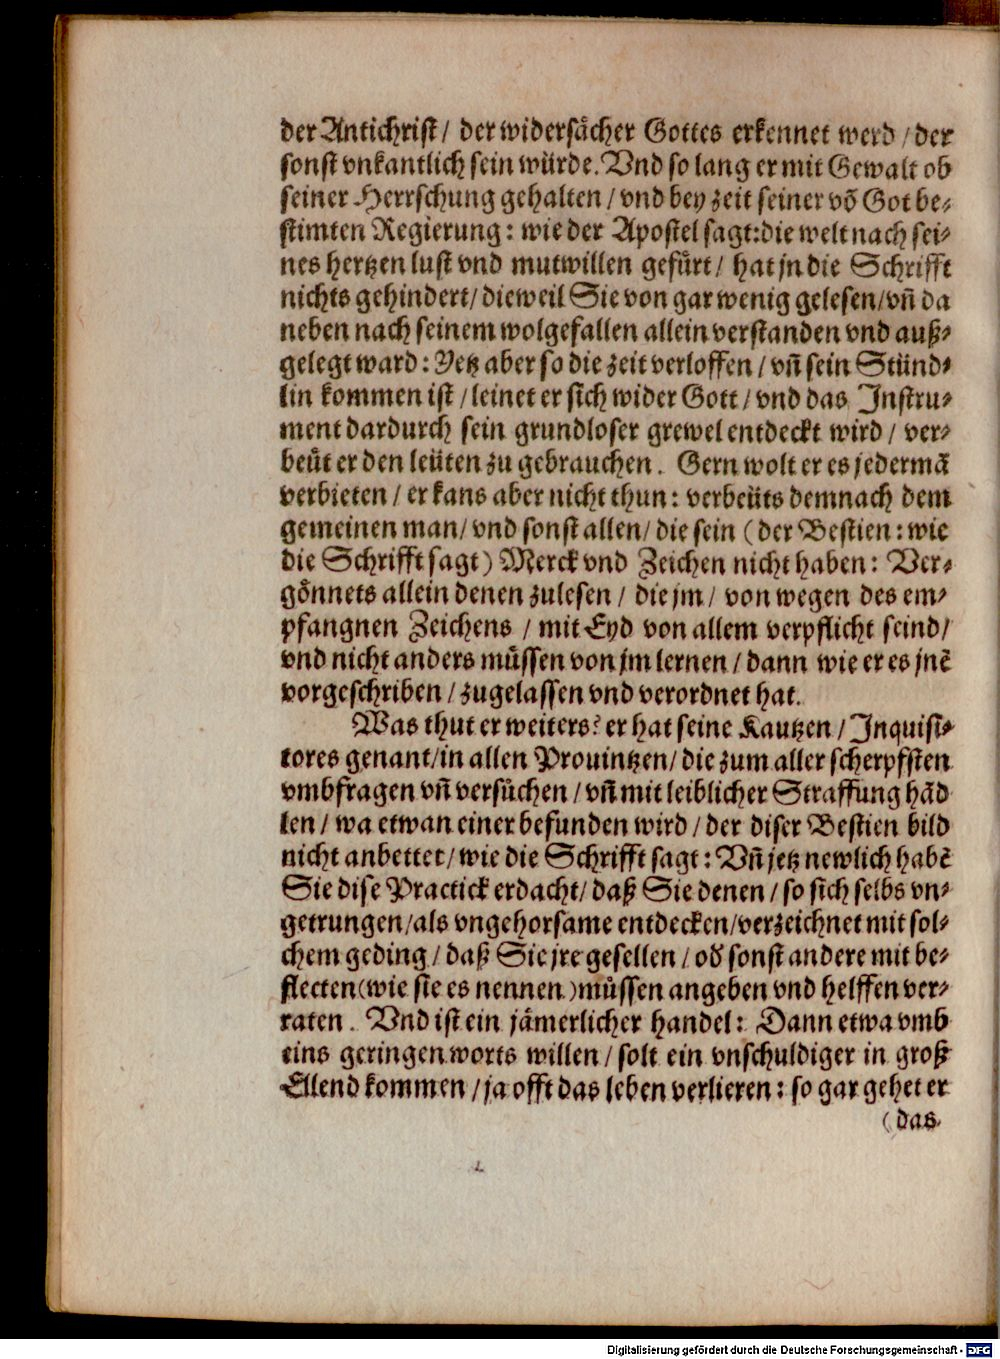 der Antichrist/ der widersaͤcher Gottes erkennet werd/der
sonst vnkantlich sein wuͤrde. Vnd so lang er mit Gewalt ob
seiner Herrschung gehalten/ vnd bey zeit seiner võ Got be⸗
stimten Regierung: wie der Apostel sagt: die welt nach sei⸗
nes hertzen lust vnd mutwillen gefuͤrt/ hat jn die Schrifft
nichts gehindert/ dieweil Sie von gar wenig gelesen/vn̄ da
neben nach seinem wolgefallen allein verstanden vnd auß⸗
gelegt ward: Yetz aber so die zeit verloffen/ vn̄ sein Stünd⸗
lin kommen ist/ leinet er sich wider Gott/ vnd das Instru⸗
ment dardurch sein grundloser grewel entdeckt wird/ ver⸗
beüt er den leüten zu gebrauchen. Gern wolt er es jedermā
verbieten/ er kans aber nicht thun: verbeüts demnach dem
gemeinen man/ vnd sonst allen/ die sein (der Bestien: wie
die Schrifft sagt) Merck vnd Zeichen nicht haben: Ver⸗
goͤnnets allein denen zulesen/ die jm/ von wegen des em⸗
pfangnen Zeichens/ mit Eyd von allem verpflicht seind/
vnd nicht anders muͤssen von jm lernen/ dann wie er es jnē
vorgeschriben/ zugelassen vnd verordnet hat.
Was thut er weiters? er hat seine Kautzen/ Inquisi⸗
tores genant/in allen Prouintzen/ die zum aller scherpfsten
vmbfragen vn̄ versuͤchen/ vn̄ mit leiblicher Straffung hād
len/ wa etwan einer befunden wird/ der diser Bestien bild
nicht anbettet/ wie die Schrifft sagt: Vn̄ jetz newlich habē
Sie dise Practick erdacht/ daß Sie denen/ so sich selbs vn⸗
getrungen/als vngehorsame entdecken/verzeichnet mit sol⸗
chem geding/ daß Sie jre gesellen/ od' sonst andere mit be⸗
flecten(wie sie es nennen)muͤssen angeben vnd helffen ver⸗
raten. Vnd ist ein jaͤmerlicher handel: Dann etwa vmb
eins geringen worts willen/ solt ein vnschuldiger in groß
Ellend kommen/ ja offt das leben verlieren: so gar gehet er
(das
Digitalisierung gefördert durch die Deutsche Forschungsgemeinschaft - DFG